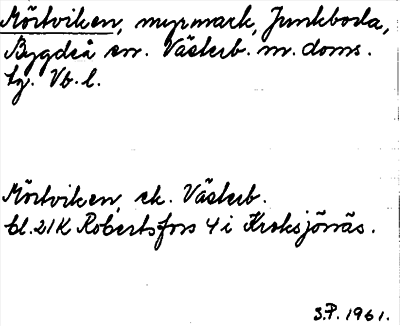 Mörtviken, myrmark, Junkboda,
Bygdeå sn. Västerb. m. doms.
tg. Vb. l.
Mörtviken, ek. Västerb.
bl. 21K Robertsfors 4 i Kroksjönäs.
S.P. 1961.